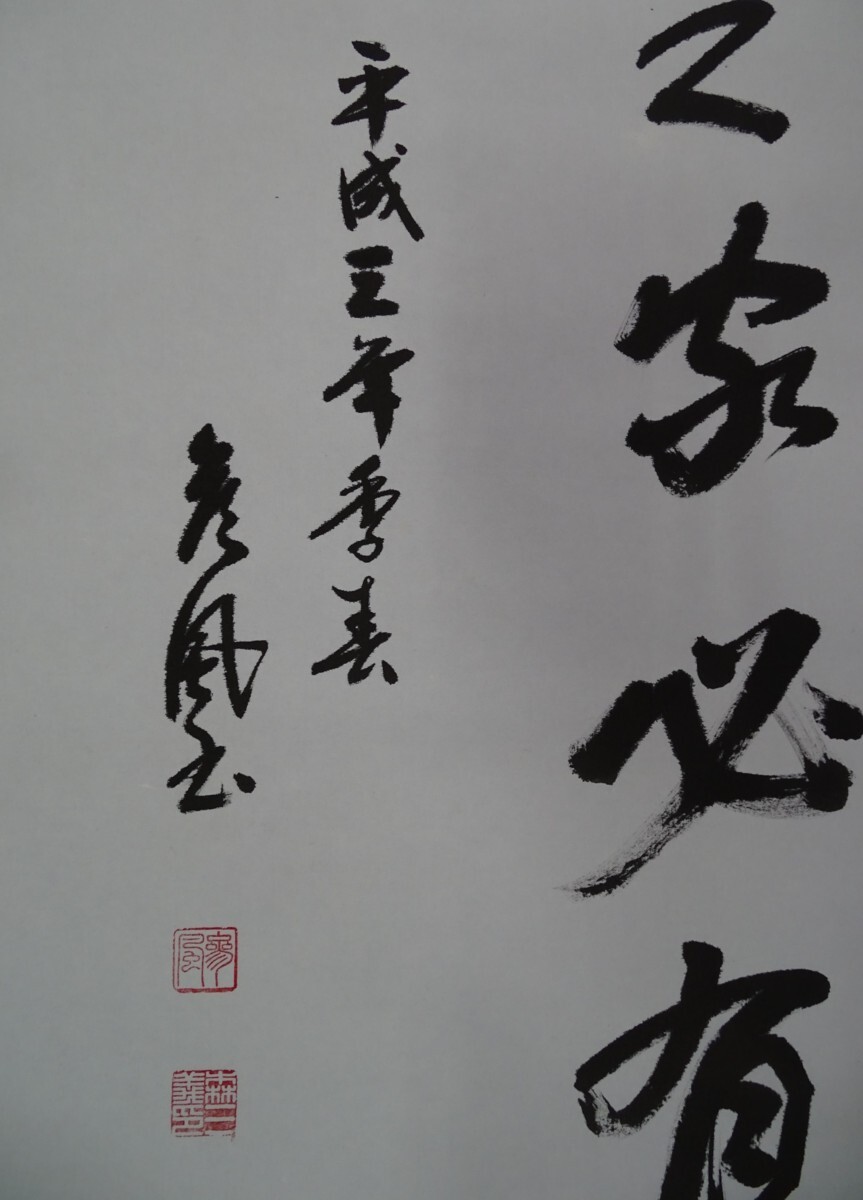 之家必有
平成三年季春
彦風書